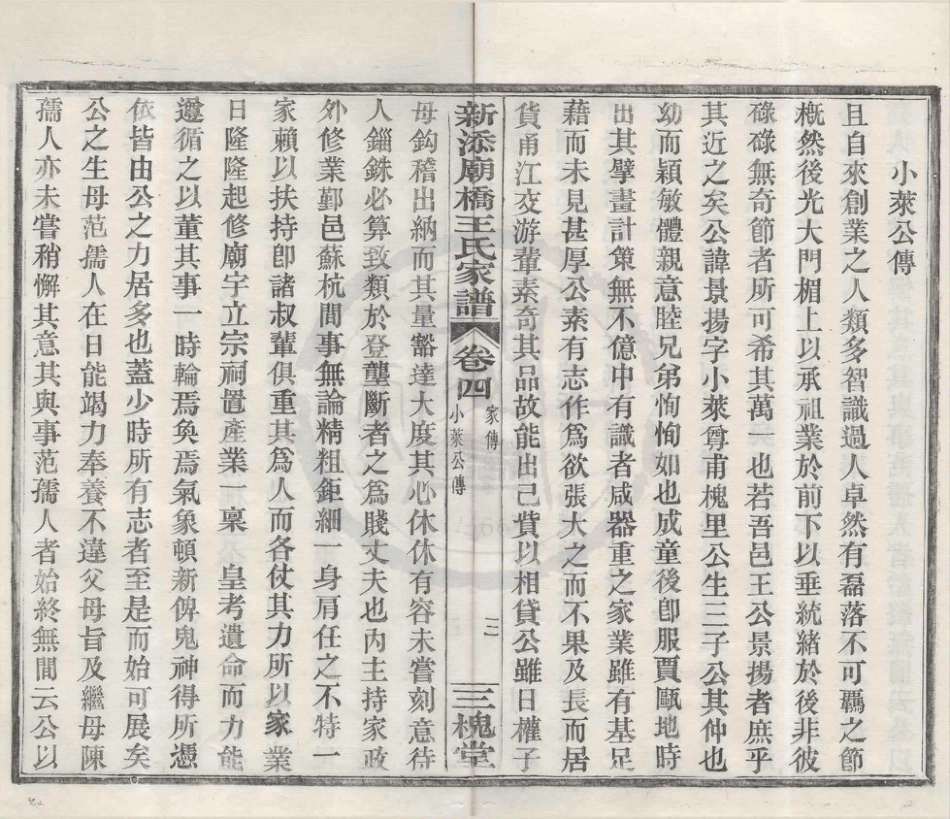 小萊公傳
且自來創業之人類多智識過人卓然有磊落不可羈之節
概然後光大門楣上以承祖業於前下以垂統緒於後非彼
碌碌無奇節者所可希其萬一也若吾邑王公景揚者庶乎
其近之矣公諱景揚字小萊尊甫槐里公生三子公其仲也
幼而穎敏體親意睦兄弟恂恂如也成童後卽服賈甌地時
出其擘畫計策無不億中有識者咸器重之家業雖有基足
藉而未見甚厚公素有志作爲欲張大之而不果及長而居
貨甬江交游輩素奇其品故能出己貲以相貸公雖日權子
新添廟橋王氏家譜
卷四
家傳
小萊公傳
三
三槐堂
母鈎稽出納而其量豁達大度其心休休有容未嘗刻意待
人錙銖必算致類於登壟斷者之爲賤丈夫也內主持家政
外修業鄞邑蘇杭間事無論精粗鉅細一身肩任之不特一
家賴以扶持卽諸叔輩俱重其爲人而各仗其力所以家業
日隆隆起修廟宇立宗祠置產業一稟 皇考遺命而力能
遵循之以董其事一時輪焉奐焉氣象頓新俾鬼神得所憑
依皆由公之力居多也蓋少時所有志者至是而始可展矣
公之生母范孺人在日能竭力奉養不違父母旨及繼母陳
孺人亦未嘗稍懈其意其與事范孺人者始終無間云公以